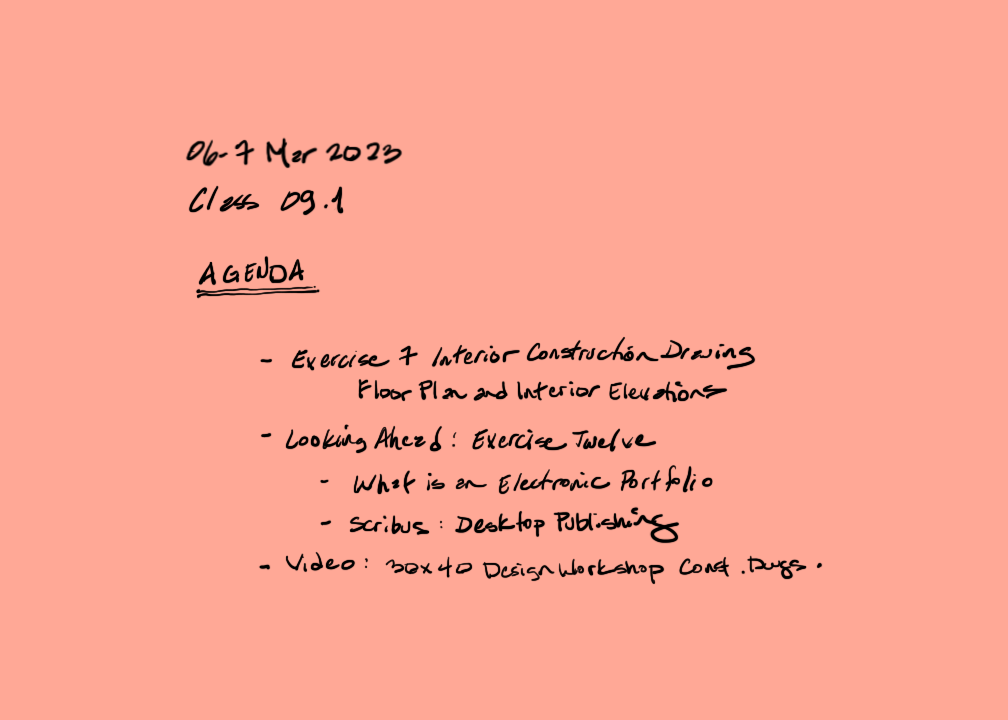 06-7 Mar 2023
Class 09.1
AGENDA
- Exercise 7 Interior Construction Drawing
Floor Plan and Interior Elevations
- Looking Ahead: Exercise Twelve
- What is an Electronic Portfolio
- Scribus: Desktop Publishing
- Video: 30x40 Design Workshop Const. Dwgs.